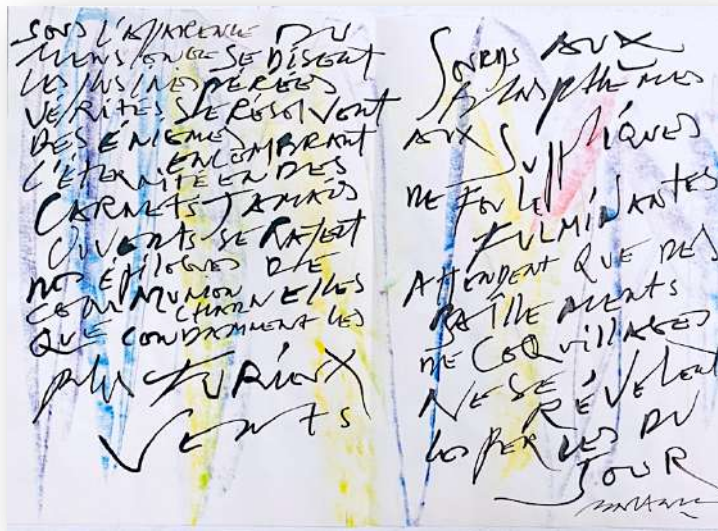 SOUS L'APPARENCE DU
MENSONGE SE DISENT
LES INSINESPÉRÉES
VÉRITÉS SE RÉSOLVENT
DES ÉNIGMES
ENCOMBRANT
L'ÉTERNITÉ EN DES
CARNETS JAMAIS
OUVERTS SE
NOS ÉPILOGUES DE
COMMUNION CHARNELLES
QUE CONDAMNENT LES
PLUS FURIEUX
VENTS
SOURDS AUX
BLASPHÈMES
AUX SUPPLIQUES
DE FOULES
FULMINANTES
ATTENDENT QUE DES
BAÎLLEMENTS
DE COQUILLAGES
NE SE RÉVÈLENT
LES PERLES DU
JOUR